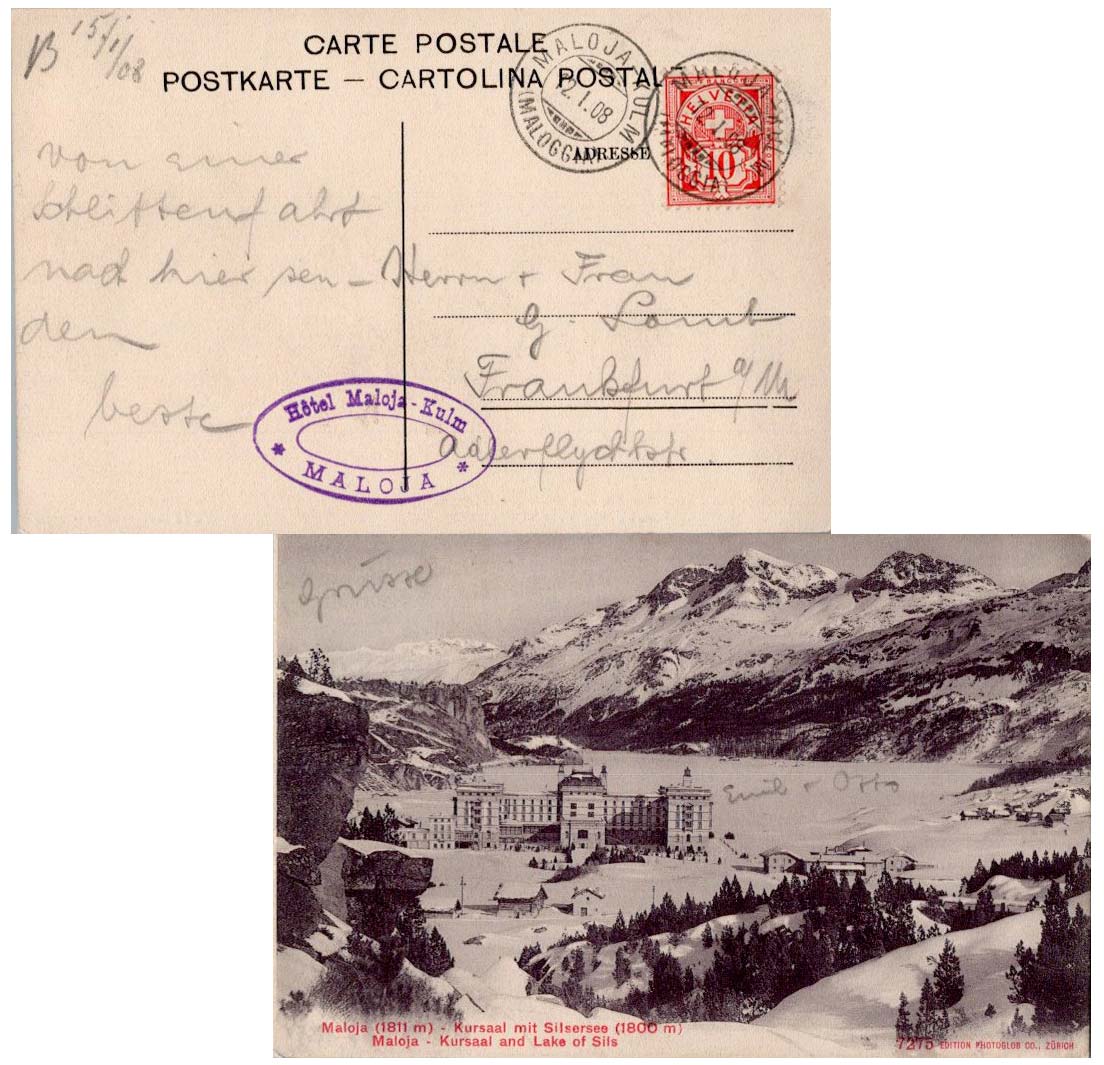 B 15/1/08
CARTE POSTALE
POSTKARTE — CARTOLINA POSTALE
MALOJA-KULM
12.1.08
(MALOGGIA)
HELVETIA
10
ADRESSE
von einer
Schlittenfahrt
nach hier sen-
den
beste
Herrn + Frau
G.
Frankfurt a/M
Adlerflychtstr
Hôtel Maloja-Kulm
* MALOJA *
Grüsse
Emil + Otto
Maloja (1811 m) - Kursaal mit Silsersee (1800 m)
Maloja - Kursaal and Lake of Sils
7275 EDITION PHOTOGLOB CO., ZÜRICH